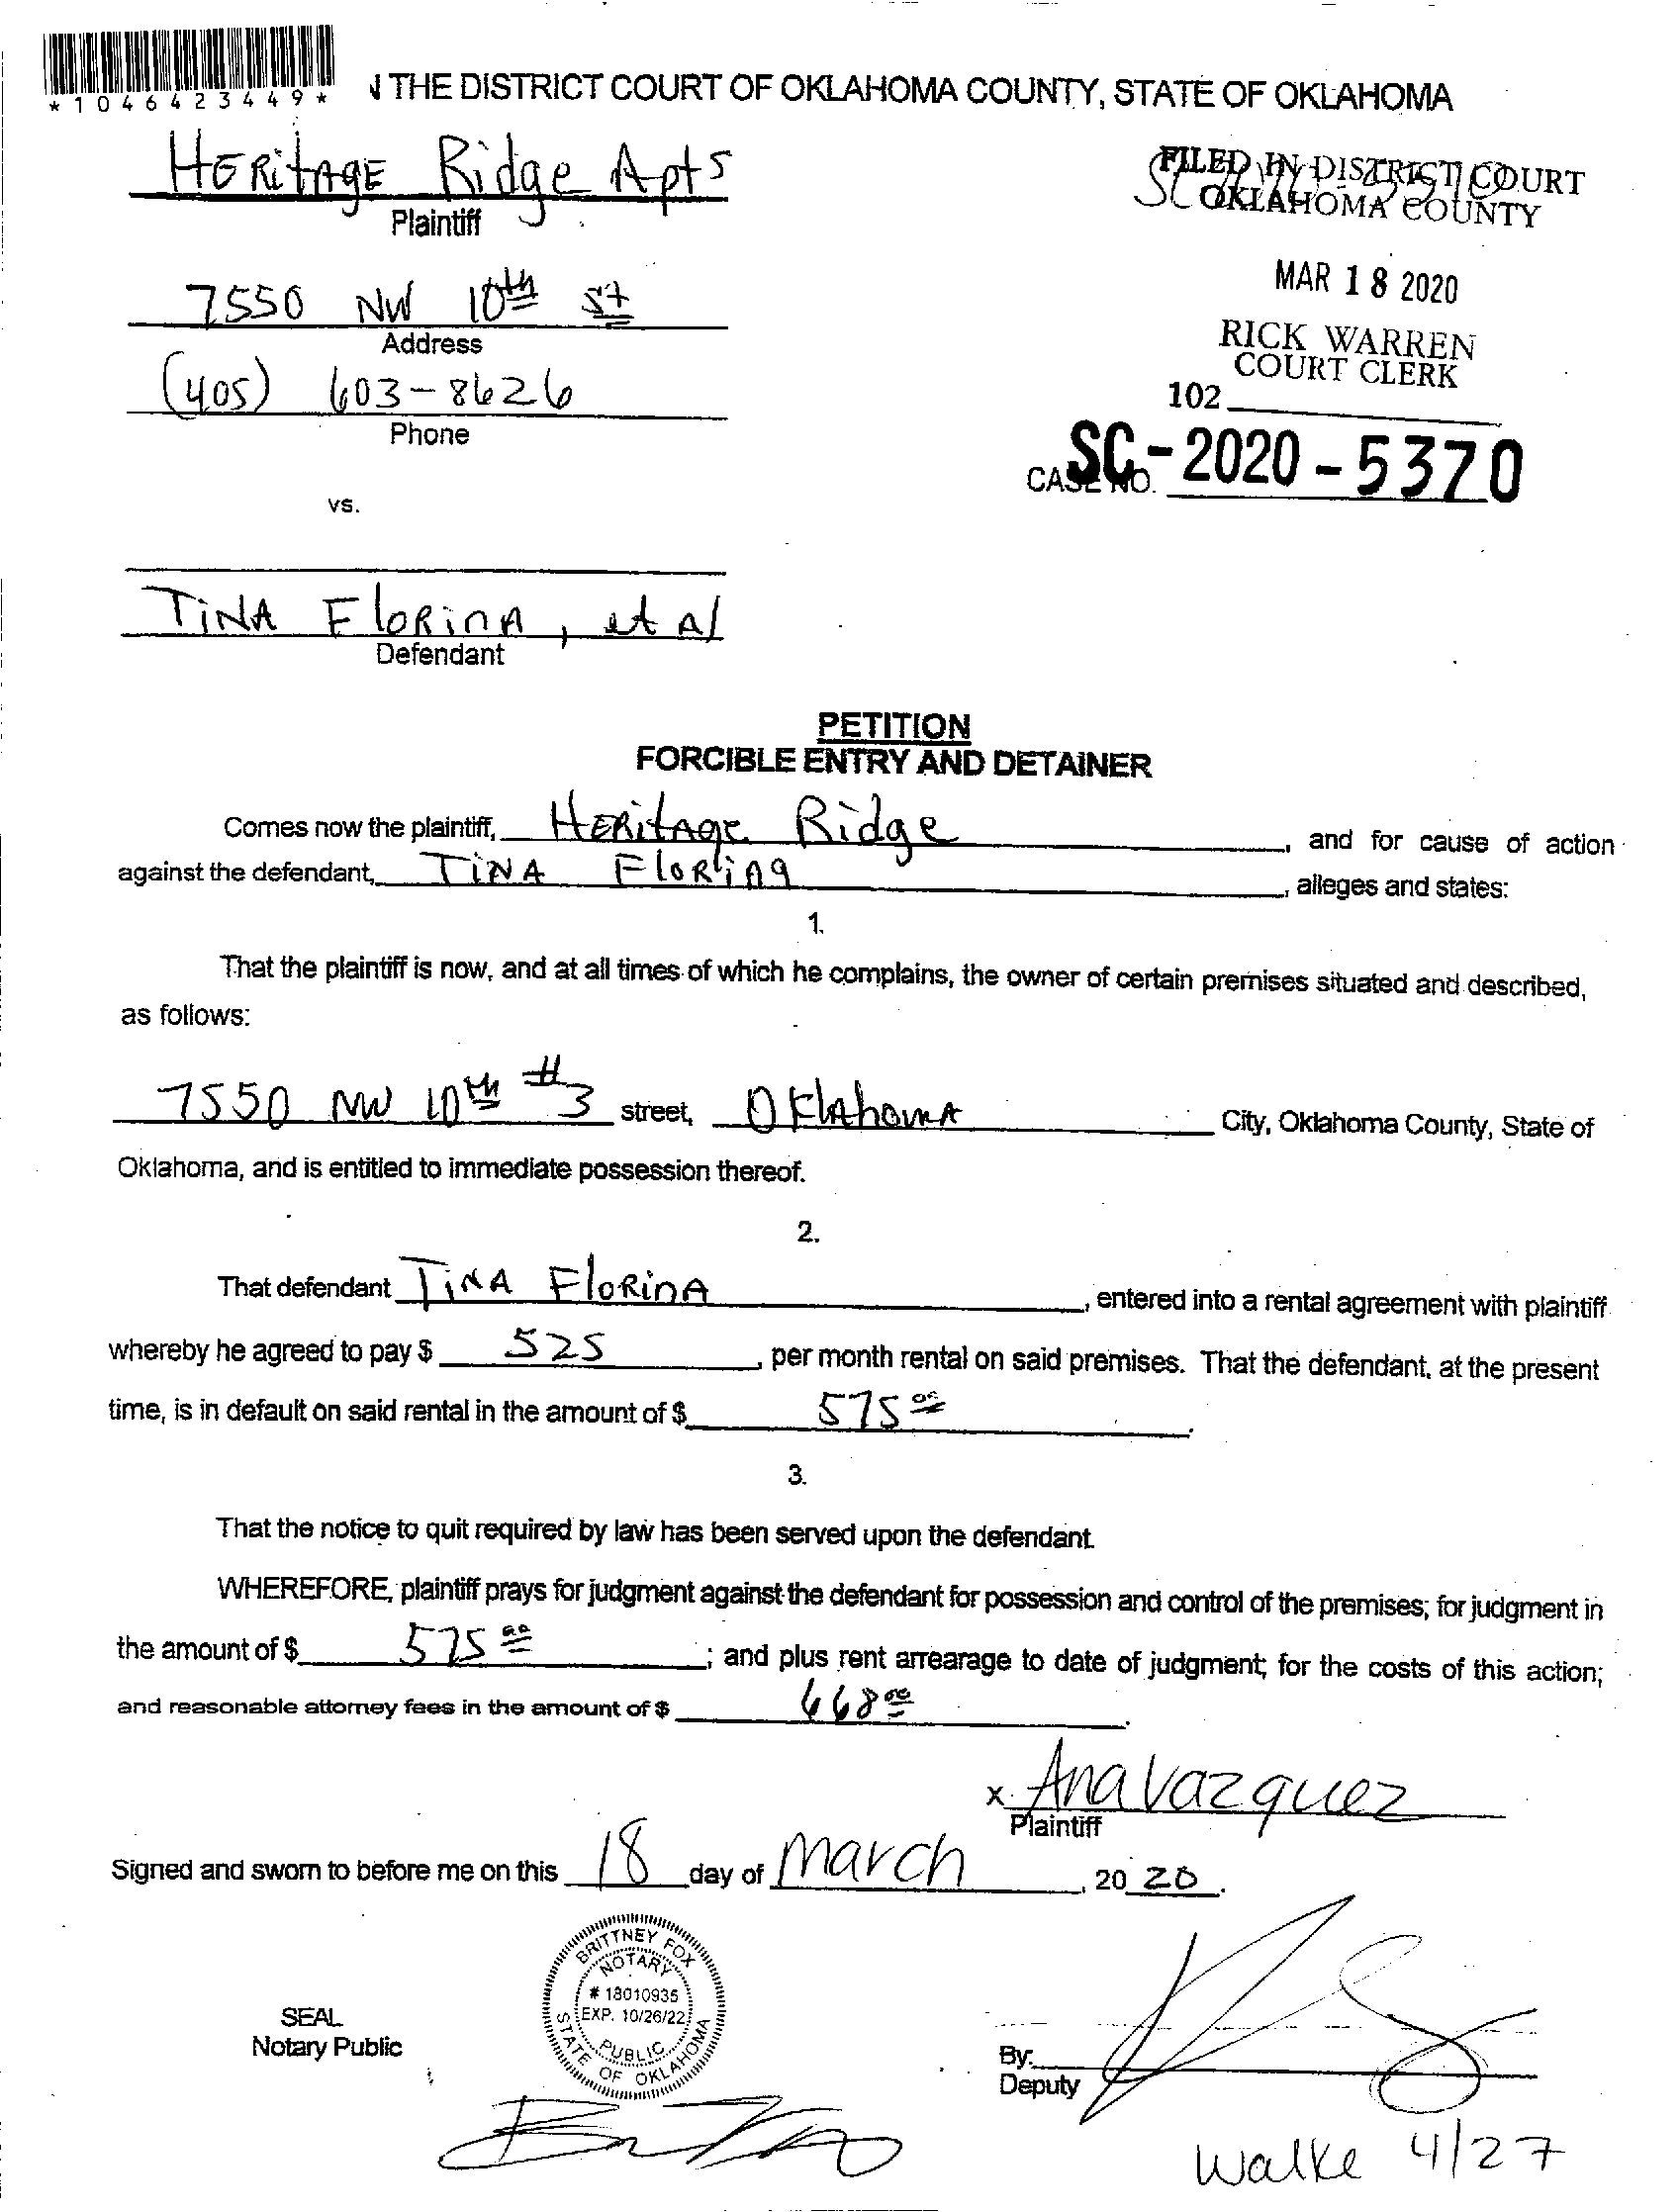 *1046423449*
N THE DISTRICT COURT OF OKLAHOMA COUNTY, STATE OF OKLAHOMA
HERitAGE Ridge Apts
Plaintiff
FILED IN DISTRICT COURT
OKLAHOMA COUNTY
7550 NW 10th st
Address
MAR 18 2020
RICK WARREN
COURT CLERK
(405) 603-8626
Phone
102
CASE NO. SC-2020-5370
vs.
TiNA FloRinA, et Al
Defendant
PETITION
FORCIBLE ENTRY AND DETAINER
Comes now the plaintiff, HERitAge Ridge, and for cause of action
against the defendant, TiNA FloRina, alleges and states:
1.
That the plaintiff is now, and at all times of which he complains, the owner of certain premises situated and described,
as follows:
7550 NW 10th #3 street, OklahomA City, Oklahoma County, State of
Oklahoma, and is entitled to immediate possession thereof.
2.
That defendant TiNA FloRinA, entered into a rental agreement with plaintiff
whereby he agreed to pay $ 525, per month rental on said premises. That the defendant, at the present
time, is in default on said rental in the amount of $ 575 00.
3.
That the notice to quit required by law has been served upon the defendant.
WHEREFORE, plaintiff prays for judgment against the defendant for possession and control of the premises; for judgment in
the amount of $ 575 00; and plus rent arrearage to date of judgment; for the costs of this action;
and reasonable attorney fees in the amount of $ 668 00.
x Ana Vazquez
Plaintiff
Signed and sworn to before me on this 18 day of March, 20 20.
BRITTNEY FOX
NOTARY
# 18010935
EXP. 10/26/22
PUBLIC
STATE OF OKLAHOMA
SEAL
Notary Public
By:
Deputy
Walke 4/27